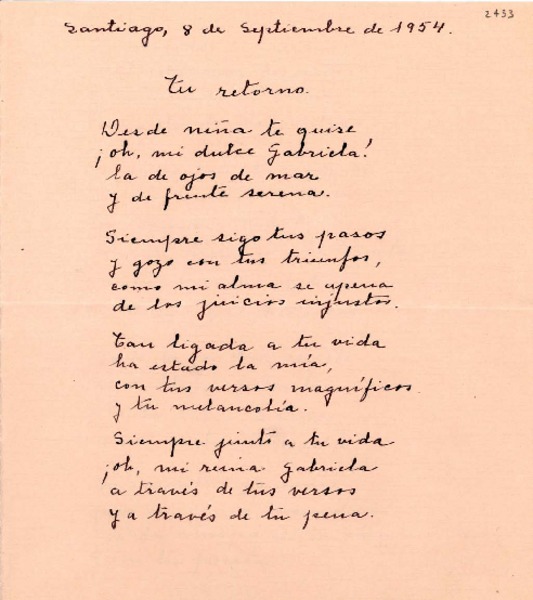 2433
Santiago, 8 de Septiembre de 1954.
Tu retorno.
Desde niña te quise
¡oh, mi dulce Gabriela!
la de ojos de mar
y de frente serena.
Siempre sigo tus pasos
y gozo con tus triunfos,
como mi alma se apena
de los juicios injustos.
Tan ligada a tu vida
ha estado la mía,
con tus versos magníficos
y tu melancolía.
Siempre junto a tu vida
¡oh, mi reina Gabriela
a través de tus versos
y a través de tu pena.